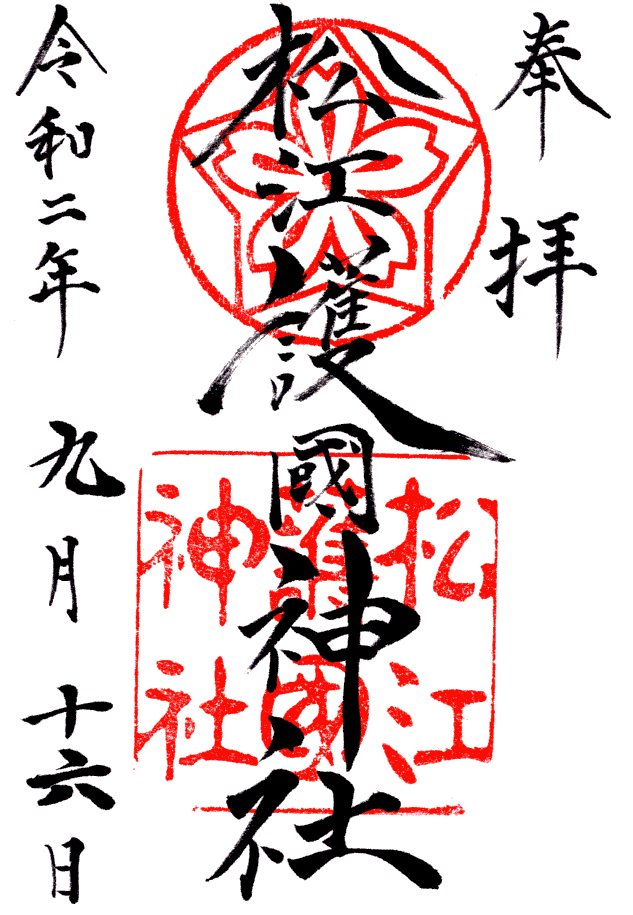 奉拝
松江護國神社
松江
護國
神社
令和二年九月十六日